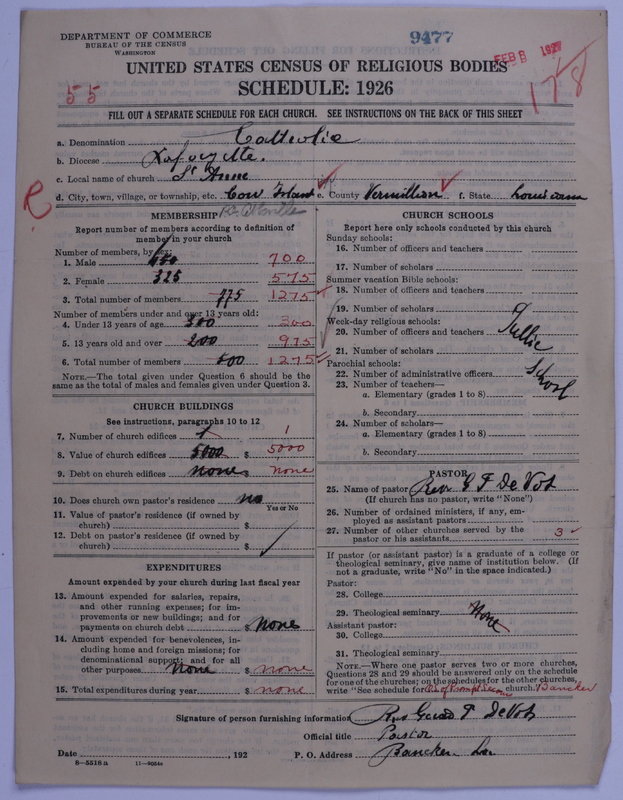 DEPARTMENT OF COMMERCE
BUREAU OF THE CENSUS
WASHINGTON
9477
FEB 1927
178
UNITED STATES CENSUS OF RELIGIOUS BODIES
55
SCHEDULE: 1926
FILL OUT A SEPARATE SCHEDULE FOR EACH CHURCH. SEE INSTRUCTIONS ON THE BACK OF THIS SHEET
a. Denomination Catholic
b. Diocese Lafayette.
c. Local name of church St Anne
R
d. City, town, village, or township, etc. Cow Island e. County Vermillion f. State Louisiana
MEMBERSHIP
Report number of members according to definition of member in your church
Number of members, by sex:
1. Male 450 700
2. Female 325 575
3. Total number of members 775 1275
Number of members under and over 13 years old:
4. Under 13 years of age 300 300
5. 13 years old and over 200 975
6. Total number of members 500 1275
NOTE.—The total given under Question 6 should be the
same as the total of males and females given under Question 3.
CHURCH BUILDINGS
See instructions, paragraphs 10 to 12
7. Number of church edifices 1 1
8. Value of church edifices $ 5000 5000
9. Debt on church edifices $ none none
10. Does church own pastor's residence no
Yes or No
11. Value of pastor's residence (if owned by
church) $
12. Debt on pastor's residence (if owned by
church) $
EXPENDITURES
Amount expended by your church during last fiscal year
13. Amount expended for salaries, repairs,
and other running expenses; for im-
provements or new buildings; and for
payments on church debt $ None
14. Amount expended for benevolences, in-
cluding home and foreign missions; for
denominational support; and for all
other purposes None $ none
15. Total expenditures during year $ none
CHURCH SCHOOLS
Report here only schools conducted by this church
Sunday schools:
16. Number of officers and teachers
17. Number of scholars
Summer vacation Bible schools:
18. Number of officers and teachers
19. Number of scholars
Week-day religious schools:
20. Number of officers and teachers
21. Number of scholars
Parochial schools:
22. Number of administrative officers School
23. Number of teachers—
a. Elementary (grades 1 to 8)
b. Secondary
24. Number of scholars—
a. Elementary (grades 1 to 8)
b. Secondary
PASTOR
25. Name of pastor Rev G F De Vos
(If church has no pastor, write "None")
26. Number of ordained ministers, if any, em-
ployed as assistant pastors
27. Number of other churches served by the
pastor or his assistants 3
If pastor (or assistant pastor) is a graduate of a college or
theological seminary, give name of institution below. (If
not a graduate, write "No" in the space indicated.)
Pastor:
28. College
29. Theological seminary None
Assistant pastor:
30. College
31. Theological seminary
NOTE.—Where one pastor serves two or more churches,
Questions 28 and 29 should be answered only on the schedule
for one of the churches; on the schedules for the other churches,
write "See schedule for O. L. of Prompt Succor church, Bancker
Signature of person furnishing information Rev Gerard F De Vos
Official title Pastor
Date , 192 P. O. Address Bancker La
8—5518 a 11—9054a